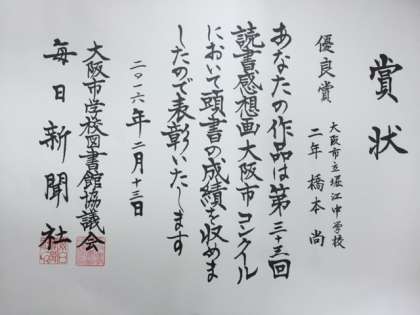 賞状
優良賞
大阪市立堀江中学校
二年 橋本 尚
あなたの作品は第三十三回
読書感想画大阪市コンクール
において頭書の成績を収めま
したので表彰いたします
二〇一六年二月十三日
大阪市学校図書館協議会
毎日新聞社